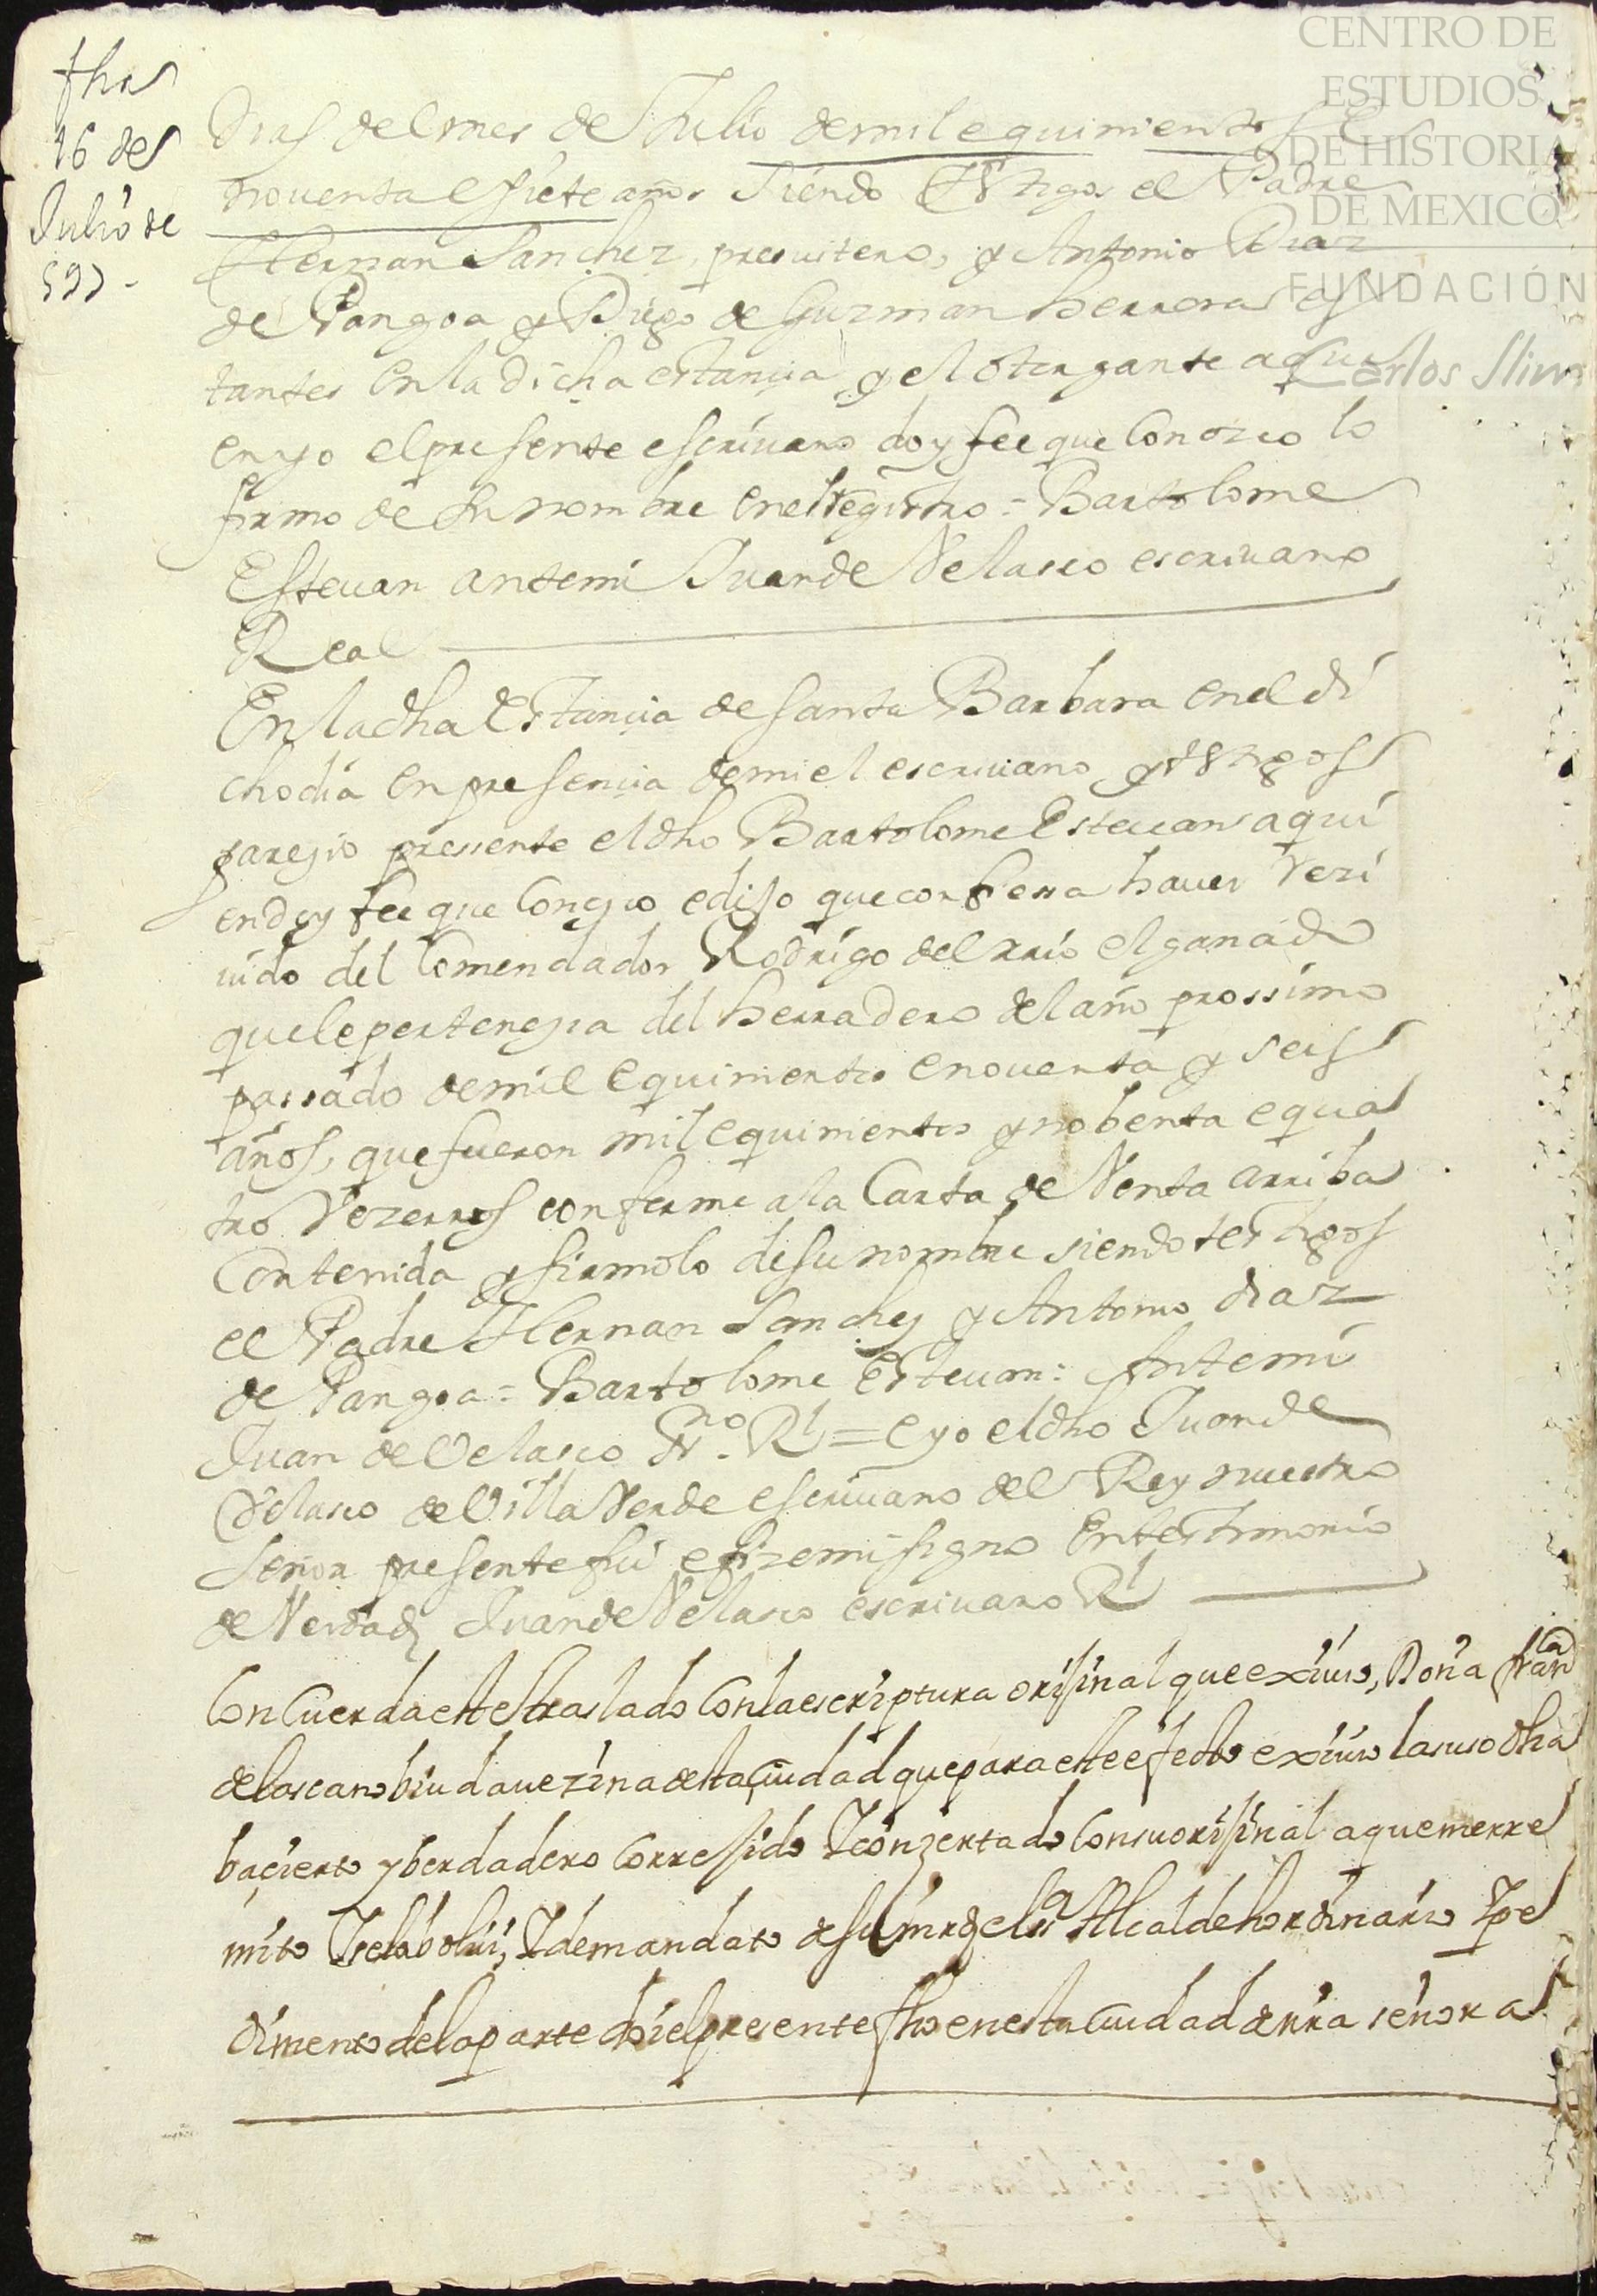 CENTRO DE
ESTUDIOS
DE HISTORIA
DE MEXICO
FUNDACIÓN
Carlos Slim
fha
16 de
Julio de
597 -
Dias del mes de Julio de mil e quinientos E
noventa e siete años siendo testigos el Padre
Hernan Sanchez, presuitero, y Antonio Diaz
de Pangoa y Diego de Guzman herrera es
tantes en la dicha estancia y el otorgante a qui
en yo el presente escriuano doy fee que Conozco lo
firmo de su nombre en el registro = Bartolome
Esteuan ante mi Juan de Velasco escriuano
Real
En la dha Estancia de santa Barbara en el di
cho dia en presencia de mi el escriuano y testigos
parezio presente el dho Bartolome Esteuan a qui
en doy fee que Conozco e dijo que confiessa hauer rezi
uido del Comendador Rodrigo del rrio el ganado
que le pertenezia del herradero del año prossimo
passado de mil e quinientos e nouenta y seis
años, que fueron mil e quinientos y nobenta e qua
tro Vezerros conforme a la Carta de Venta arriba
Contenida y firmolo de su nombre siendo testigos
el Padre Hernan Sanchez y Antonio diaz
de Pangoa = Bartolome Esteuan: Ante mi
Juan de Velasco Ssno. Rl = E yo el dho Juan de
Velasco de Villa Verde escriuano del Rey nuestro
Señor presente fui e fize mi signo En testimonio
de Verdad Juan de Velasco escriuano Rl
Con Cuerda este traslado Con la escriptura orijinal que exiuio, Dona fran.ca
de lascano biuda uezina desta Ciudad que para este efecto exiuio la suso dha
ba çierto y berdadero Correjido Y conzertado Con su orijinal a que me rre
mito Y se la bolui, Y de mandato de su mrd el sr Alcalde hordinario Y pe
dimento de la parte di el presente fho en esta Ciudad de nra señora